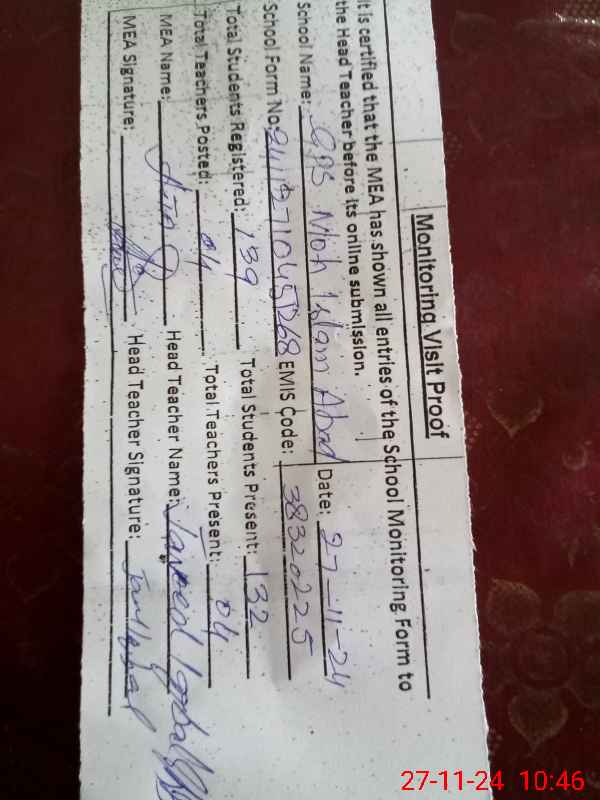 Monitoring Visit Proof
It is certified that the MEA has shown all entries of the School Monitoring Form to
the Head Teacher before its online submission.
School Name: GPS Moh Islam Abad Date: 27-11-24
School Form No: EMIS Code: 38320225
Total Students Registered: 139 Total Students Present: 132
Total Teachers Posted: 04 Total Teachers Present: 04
MEA Name: Head Teacher Name: Javeed Iqbal
MEA Signature: Head Teacher Signature:
27-11-24 10:46